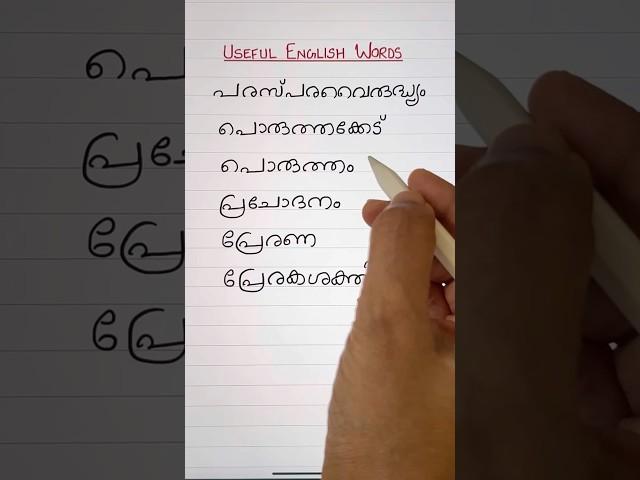 USEFUL ENGLISH WORDS
പരസ്പരവൈരുദ്ധ്യം
പൊരുത്തക്കേട്
പൊരുത്തം
പ്രചോദനം
പ്രേരണ
പ്രേരകശക്തി